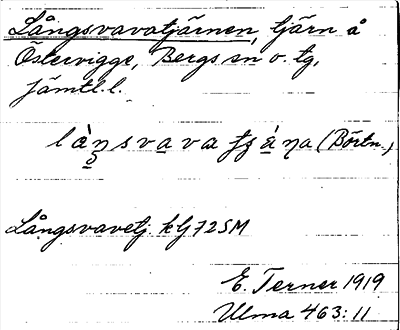 Långsvavatjärnen, tjärn å
Östervigge, Bergs sn o. tg,
Jämtl. l.
(Börtn.)
Långsvavetj. klj 72 SM
E. Terner 1919
Ulma 463:11